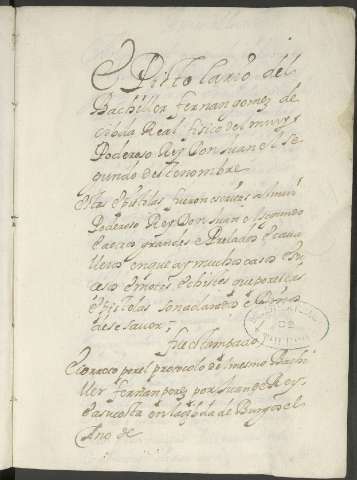 Epistolario del
Bachiller fernan gomez de
cibda Real fisico del muy
Poderoso Rey Don Juan el Se
gundo deste nombre
Estas epistolas fueron escritas al muy
Poderoso Rey Don Juan el segundo
e a otros grandes e Prelados e cava
lleros en que ay muchos casos e su
e chistes que por estas
epistolas son aclarados e
de saver
fue estampado
e correto por el protocolo del mesmo Bachi
ller fernan perez por Juan de Rey
e a su costa en la cibda de Burgos el
Año de